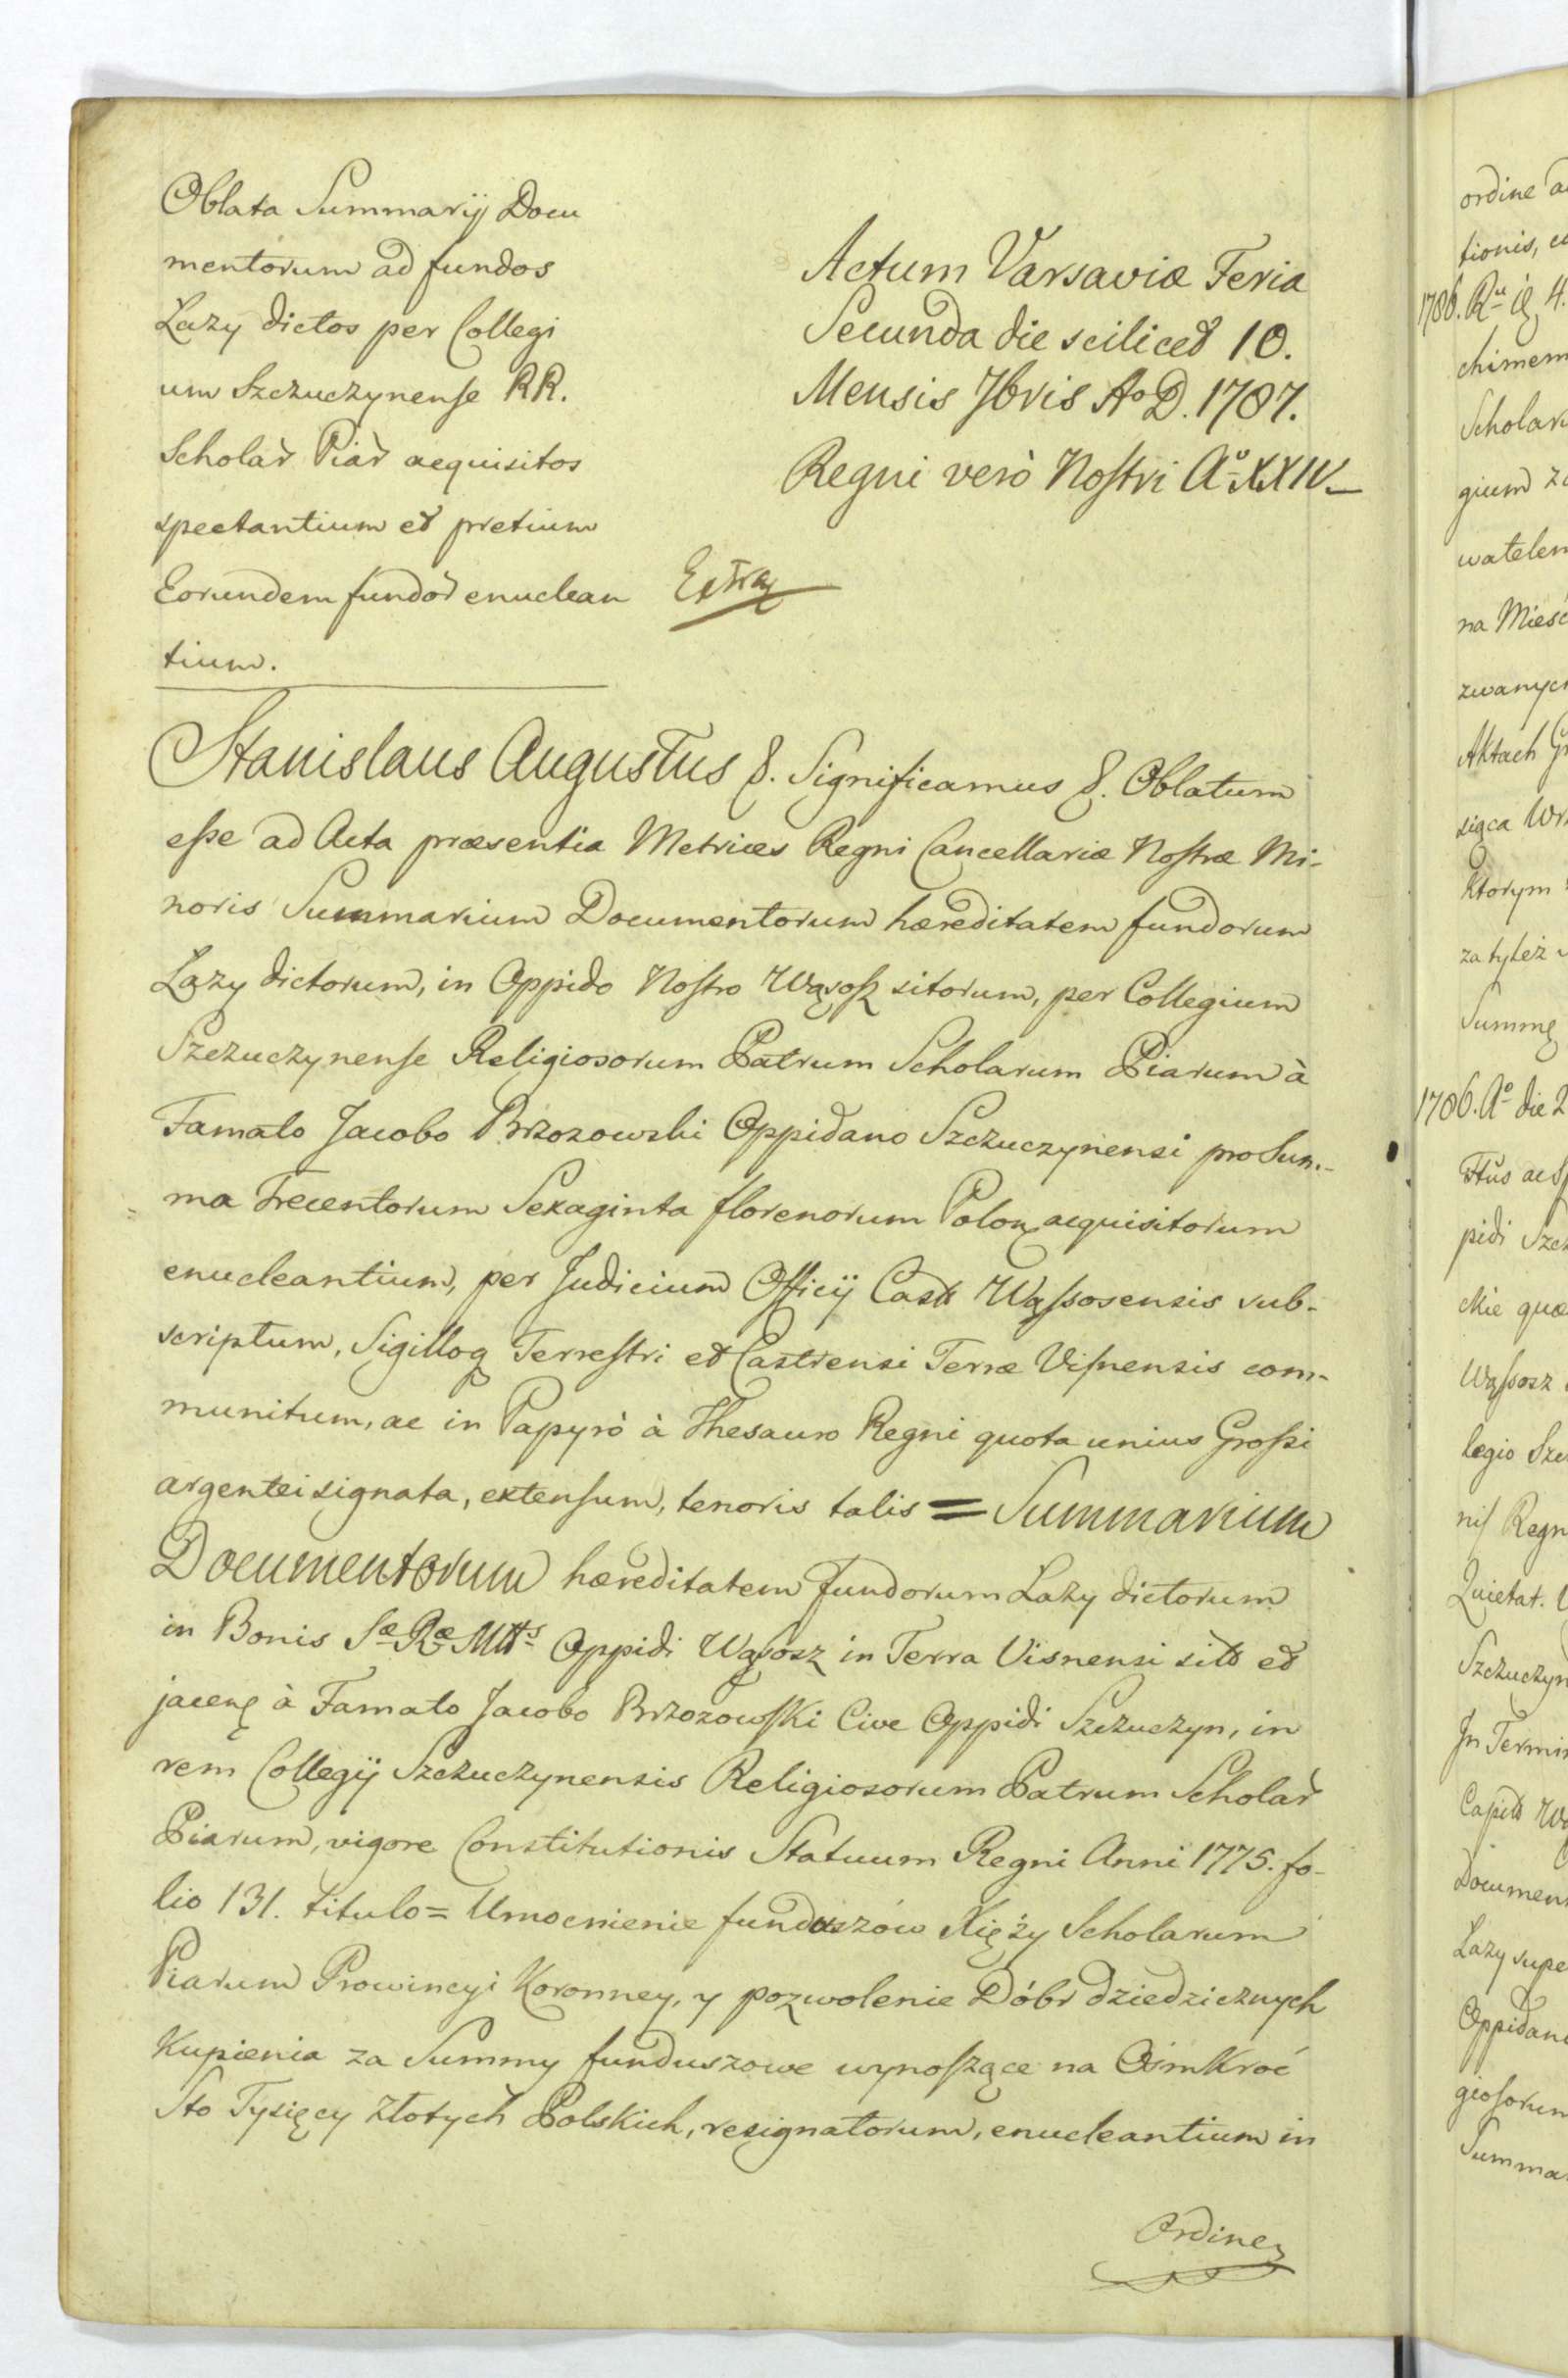 Oblata Summarij Docu
mentorum ad fundos
Lazy dictos per Collegi
um Szczuczynense RR.
Scholar Piar acquisitos
spectantium et pretium
Eorundem fundor enuclean
tium.
Actum Varsaviæ Feria
Secunda die scilicet 10.
Mensis 7bris Ao D. 1787.
Regni verò Nostri Ao XXIV
Stanislaus Augustus &. Significamus &. Oblatum
esse ad Acta præsentia Metrices Regni Cancellariæ Nostræ Mi-
noris Summarium Documentorum hæreditatem fundorum
Lazy dictorum, in Oppido Nostro Wąsosz sitorum, per Collegium
Szczuczynense Religiosorum Patrum Scholarum Piarum à
Famato Jacobo Brzozowski Oppidano Szczuczynensi pro Sum-
ma Trecentorum Sexaginta florenorum Polon acquisitorum
enucleantium, per Judicium Officij Cast Wąssosensis sub-
scriptum, Sigilloq Terrestri et Castrensi Terræ Visnensis com-
munitum, ac in Papyrò à Thesauro Regni quota unius Grossi
argentei signata, extensum, tenoris talis = Summarium
Documentorum hæreditatem fundorum Lazy dictorum
in Bonis Sæ Ræ Mttis Oppidi Wąsosz in Terra Visnensi sito et
jacen à Famato Jacobo Brzozowski Cive Oppidi Szczuczyn, in
rem Collegij Szczuczynensis Religiosorum Patrum Scholar
Piarum, vigore Constitutionis Statuum Regni Anni 1775. fo-
lio 131. titulo = Umocnienie funduszów Xięży Scholarum
Piarum Prowincyi Koronney, y pozwolenie Dóbr dziedzicznych
Kupienia za Summy funduszowe wynoszące na Ośmkroć
Sto Tysięcy Złotych Polskich, resignatorum, enucleantium in
Ordine
ordine
tionis,
1786.
Scholar
gium
na
zwanych
Aktach
ktorym
za tyleż
Summę
1786. Ao die 2
pidi
quæ
Wąssosz
legio
Regn
Quietat.
In
Lazy
Oppidan
Summa